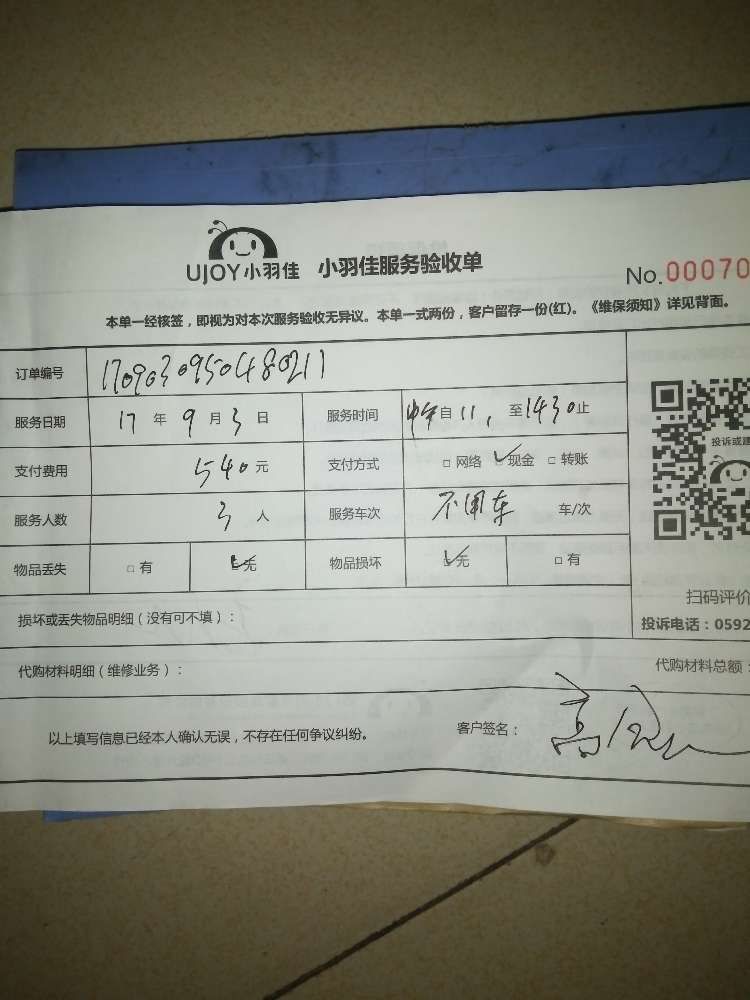 UJOY小羽佳 小羽佳服务验收单 No.00070
本单一经核签，即视为对本次服务验收无异议。本单一式两份，客户留存一份(红)。《维保须知》详见背面。
订单编号 1709030950480211
服务日期 17 年 9 月 3 日 服务时间 中午自 11, 至1430止
支付费用 540 元 支付方式 □ 网络 ✓ 现金 □ 转账
投诉或建
服务人数 3 人 服务车次 不用车 车/次
物品丢失 □ 有 ✓ 无 物品损坏 ✓ 无 □ 有
扫码评价
损坏或丢失物品明细（没有可不填）：
投诉电话：0592
代购材料明细（维修业务）： 代购材料总额：
以上填写信息已经本人确认无误，不存在任何争议纠纷。 客户签名： 高